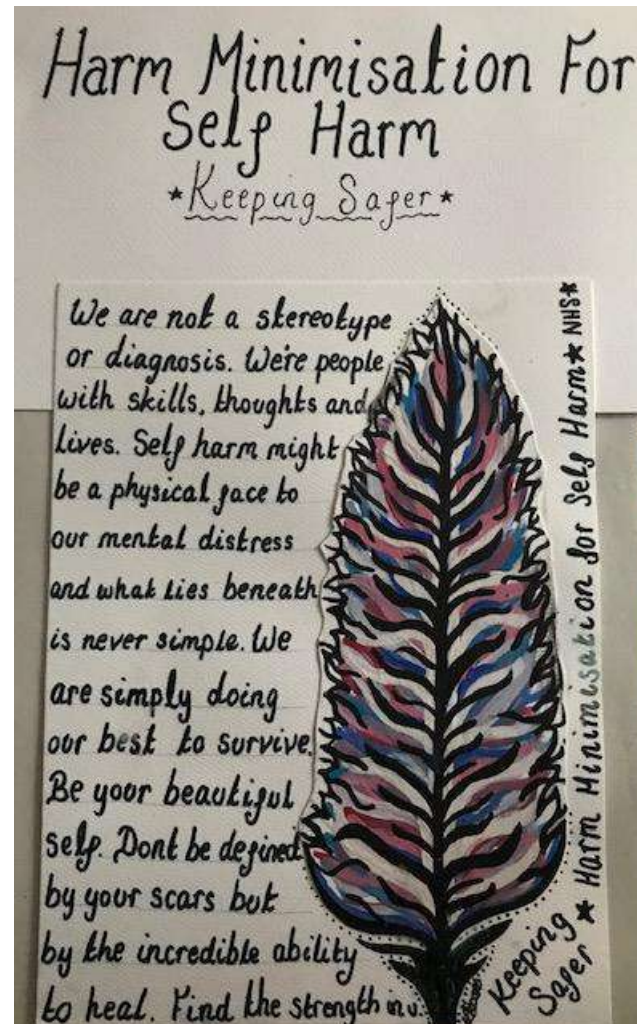 Harm Minimisation For
Self Harm
*Keeping Safer*
We are not a stereotype
or diagnosis. We're people
with skills, thoughts and
lives. Self harm might
be a physical face to
our mental distress
and what lies beneath
is never simple. We
are simply doing
our best to survive.
Be your beautiful
self. Dont be defined
by your scars but
by the incredible ability
to heal. Find the strength in u.
Keeping
Safer
* Harm Minimisation for Self Harm * NHS *